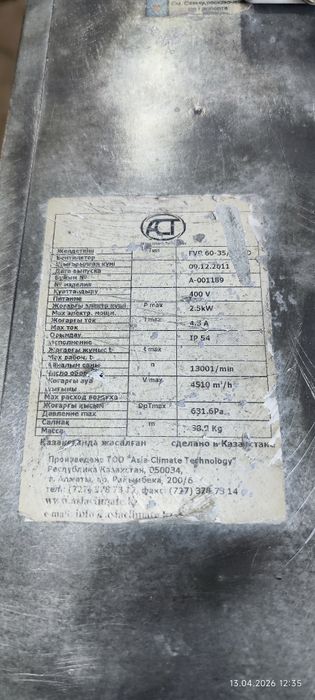 ACT
Желдеткіш
Вентилятор
Шығарылған күні
Дата выпуска
Бұйым №
№ изделия
Қуаттандыру
Питание
Жоғарғы электр күші
Max электр. мощн.
Жоғарғы ток
Max ток
Орындау
Исполнение
Жоғарғы жұмыс t
Max рабоч. t
Айналым саны
Число обор
Жоғарғы ауа
шығыны
Max расход воздуха
Жоғарғы қысым
Давление max
Салмақ
Масса
Тип
P max
I max
t max
n
V max
DpTmax
m
FVR 60-35/
09.12.2011
A-001189
400 V
2.5kW
4.3 A
IP 54
13001/min
4510 m³/h
631.6Pa
38.9 Kg
Қазақстанда жасалған сделано в Казахстане
Произведено ТОО "Asia Climate Technology"
Республика Казахстан, 050034,
г. Алматы, пр. Райымбека, 200/6
тел.: (727) 378 73 17, факс: (727) 378 73 14
www.asiaclimate.kz
e-mail: info@asiaclimate.kz
13.04.2026 12:35